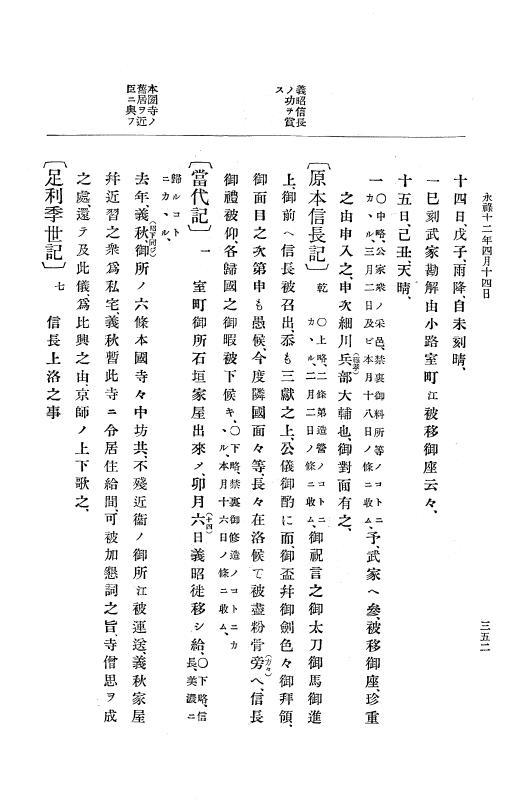 永祿十二年四月十四日
三五二
義昭信長
ノ功ヲ賞
ス
本圀寺ノ
舊居ヲ近
臣ニ與フ
十四日、戊子、雨降、自未刻晴、
一巳刻武家勘解由小路室町江被移御座云々、
十五日、己丑、天晴、
一〇中略、公家衆ノ采邑、禁裏御料所等ノコトニ
カヽル、三月二日及ビ本月十八日ノ條ニ收ム、予、武家へ參、被移御座、珍重
之由申入之、申次細川兵部大輔也、御對面有之、
(藤孝)
〔原本信長記〕 乾 〇上略、二條第造營ノコトニ
カヽル、二月二日ノ條ニ收ム、御祝言之御太刀御馬御進
上、御前へ信長被召出忝も三獻之上、公儀御酌に而御盃幷御劍色々御拜領、
御面目之次第申も愚候、今度隣國面々等、長々在洛候て被盡粉骨旁へ、信長
(方々)
御禮被仰、各歸國之御暇被下候キ、〇下略、禁裏御修造ノコトニカ
ヽル、本月十六日ノ條ニ收ム、
〔當代記〕 一 室町御所石垣家屋出來メ、卯月六日義昭徙移シ給、〇下略、信
長、美濃ニ
(十四)
歸ルコト
ニカヽル、
去年、義秋御所ノ六條本國寺々中坊共、不殘近衞ノ御所江被運送、義秋家屋
(昭下同ジ)
幷近習之衆爲私宅、義秋暫此寺ニ令居住給間、可被加懇詞之旨、寺僧思ヲ成
之處、還テ及此儀、爲比興之由、京師ノ上下歌之、
〔足利季世記〕 七 信長上洛之事